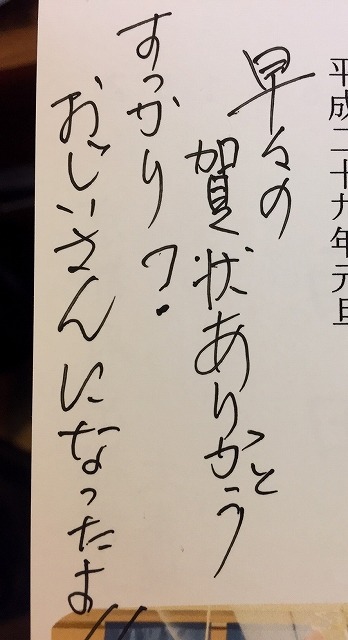 平成二十九年元旦
早々の
賀状ありがとう
すっかり?
おじいさんになったよ//